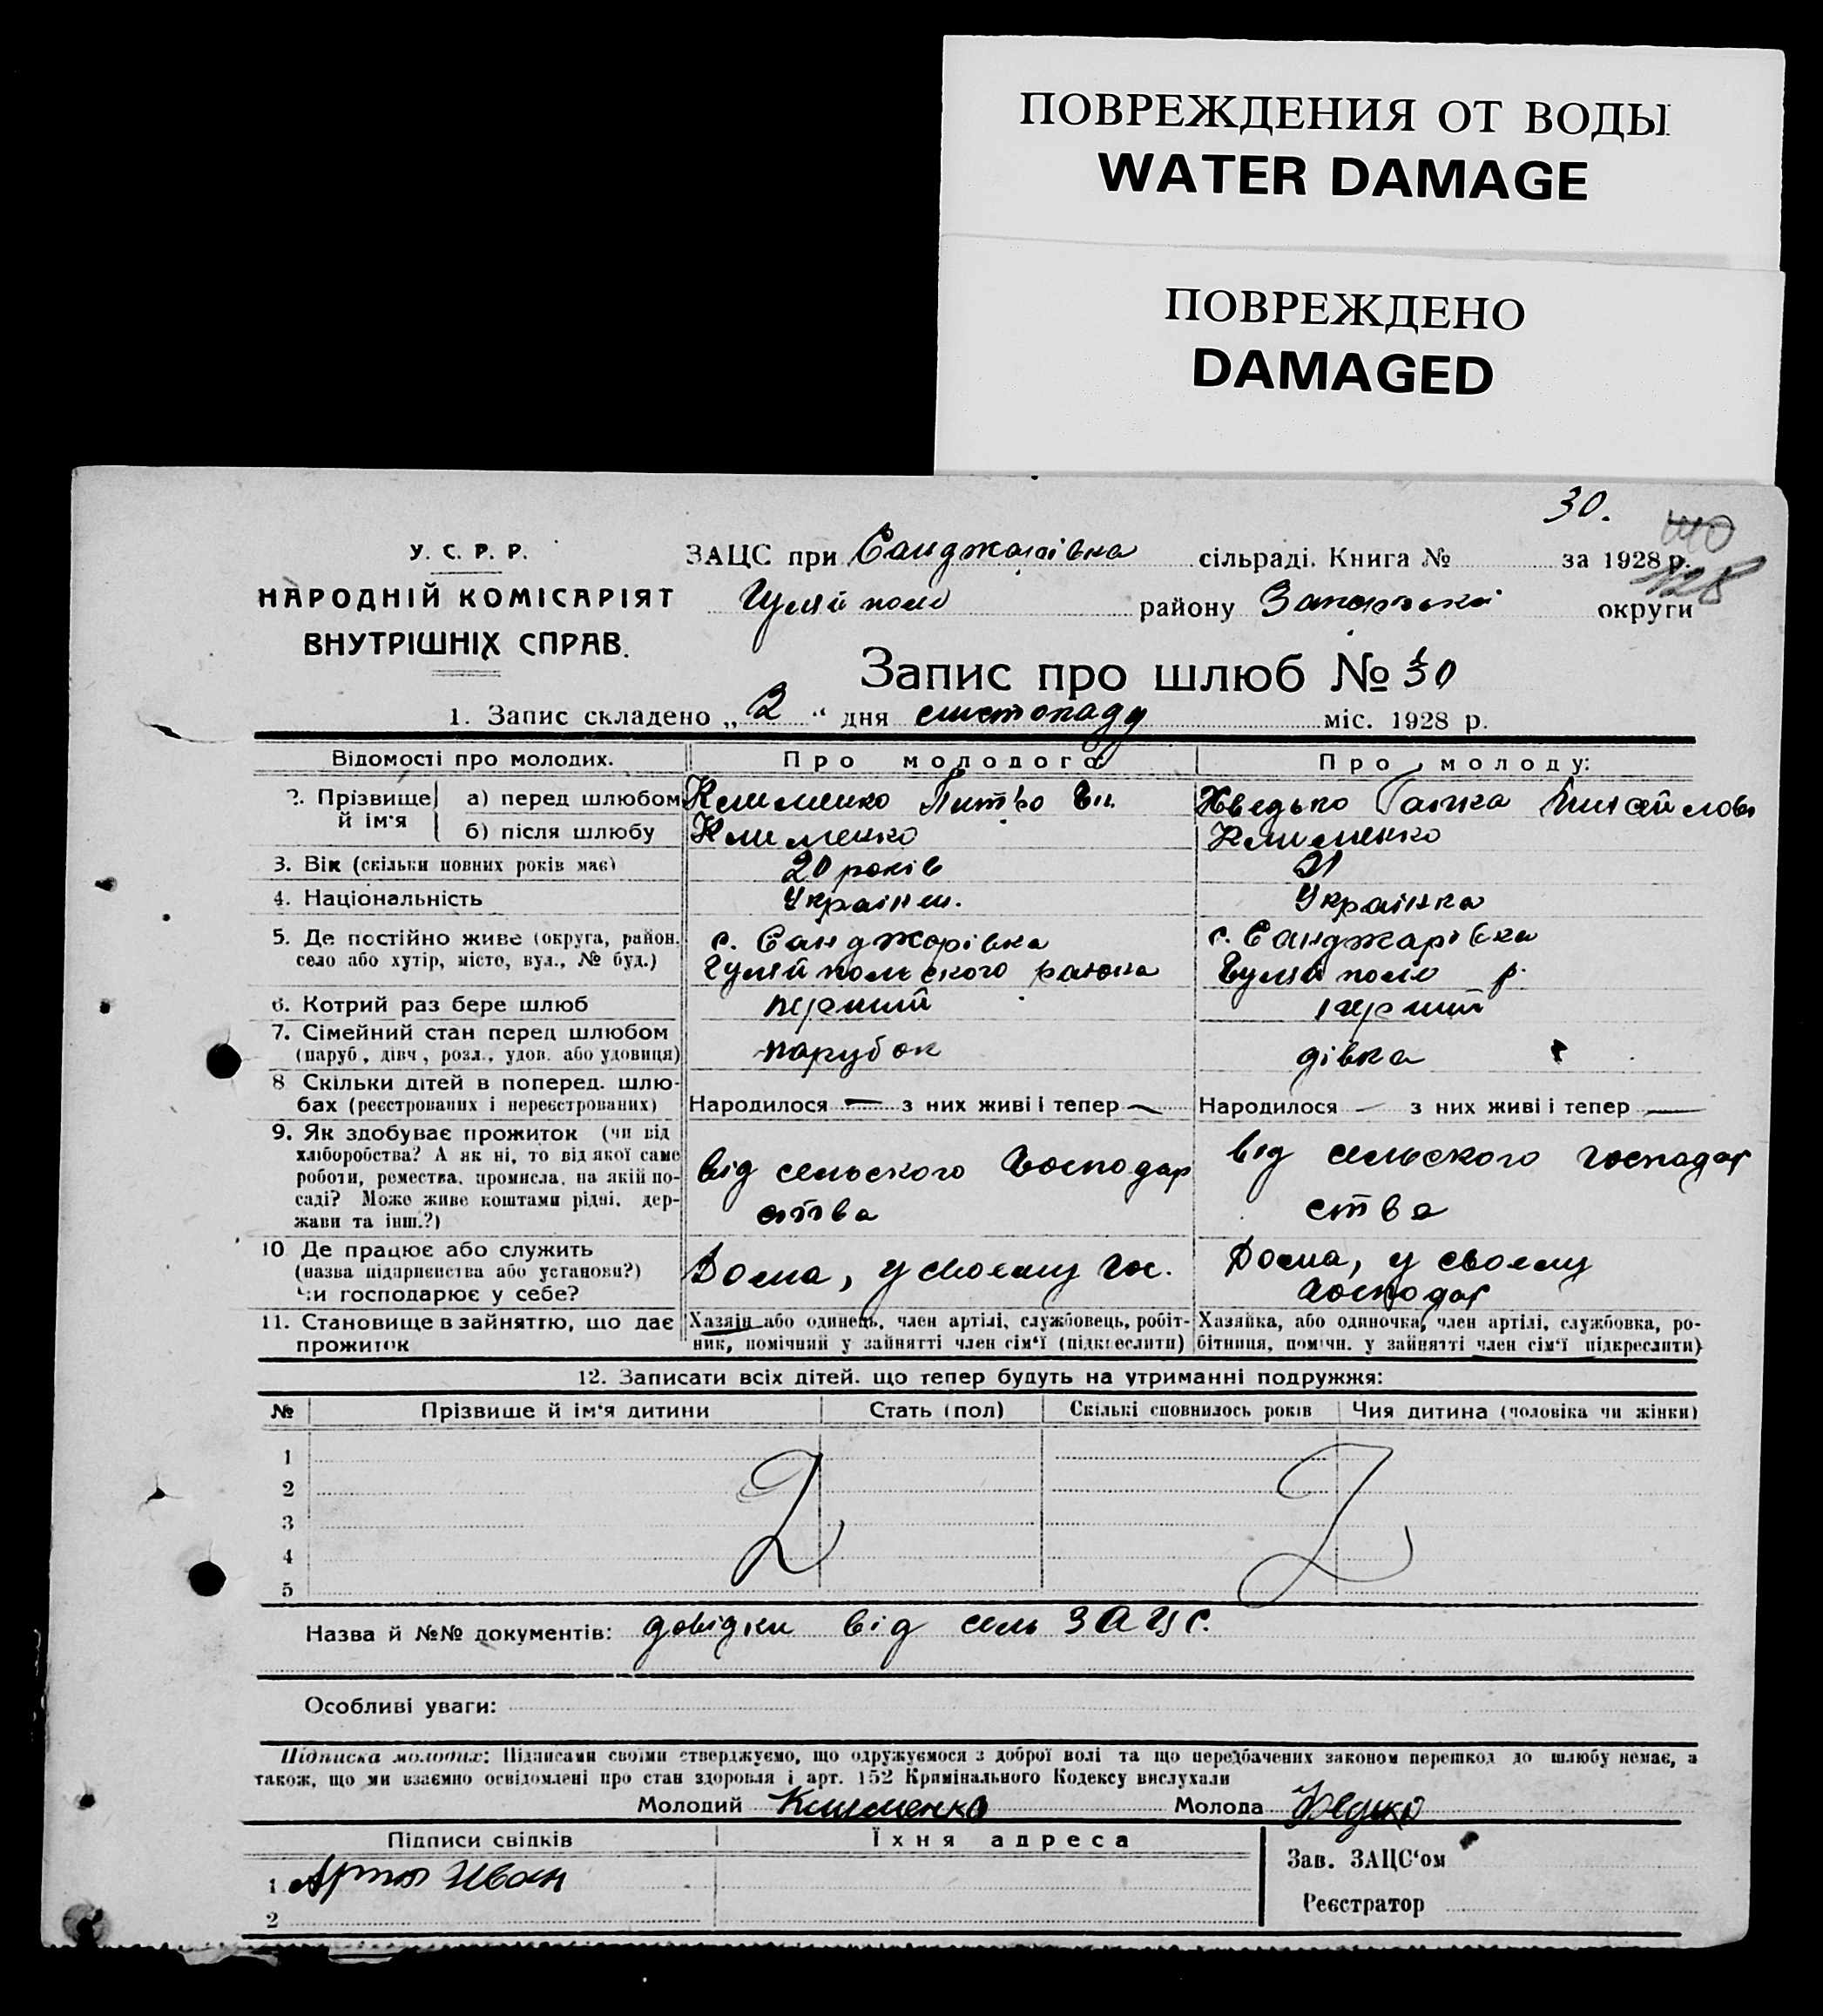 ПОВРЕЖДЕНИЯ ОТ ВОДЫ
WATER DAMAGE
ПОВРЕЖДЕНО
DAMAGED
30.
У. С. Р. Р.
НАРОДНІЙ КОМІСАРІЯТ
ВНУТРІШНІХ СПРАВ.
ЗАЦС при Санджарівка сільраді. Книга № за 1928 р.
128
Гуляй поле району округи
Запис про шлюб № 30
1. Запис складено „ 2 “ дня листопаду міс. 1928 р.
Відомості про молодих. Про молодого: Про молоду:
2. Прізвище й ім'я а) перед шлюбом Клименко Хведько Михайлов
б) після шлюбу Клименко Клименко
3. Вік (скільки повних років має) 20 років 21
4. Національність Україн. Українка
5. Де постійно живе (округа, район, с. Санджарівка с. Санджарівка
село або хутір, місто, вул., № буд.) Гуляйпольского района Гуляй поле р.
6. Котрий раз бере шлюб перший перший
7. Сімейний стан перед шлюбом
(паруб., дівч., розл., удов. або удовиця) парубок дівка
8 Скільки дітей в поперед. шлю-
бах (реєстрованих і нереєстрованих) Народилося — з них живі і тепер — Народилося — з них живі і тепер —
9. Як здобуває прожиток (чи від
хліборобства? А як ні, то від якої саме
роботи, ремества, промисла, на якій по-
саді? Може живе коштами рідні, дер-
жави та інш.?)
від сельского господар
ства
від сельского господар
ства
10 Де працює або служить
(назва підприєнства або установи?)
Чи господарює у себе?
Дома, у своєму гос.
Дома, у своєму
господар
11. Становище в зайняттю, що дає
прожиток
Хазяїн або одинець, член артілі, службовець, робіт-
ник, помічний у зайнятті член сім'ї (підкреслити)
Хазяйка, або одиночка, член артілі, службовка, ро-
бітниця, помічн. у зайнятті член сім'ї підкреслити)
12. Записати всіх дітей, що тепер будуть на утриманні подружжя:
№ Прізвище й ім'я дитини Стать (пол) Скількі сповнилось років Чия дитина (чоловіка чи жінки)
1
2
3
4
5
Назва й №№ документів: довідки від сель ЗАЦС.
Особливі уваги:
Підписка молодих: Підписами своїми стверджуємо, що одружуємося з доброї волі та що передбачених законом перешкод до шлюбу немає, а
також, що ми взаємно освідомлені про стан здоровля і арт. 152 Крамінального Кодексу вислухали
Молодий Клименко Молода
Підписи свідків Їхня адреса
1 Иван
2
Зав. ЗАЦС'ом
Реєстратор